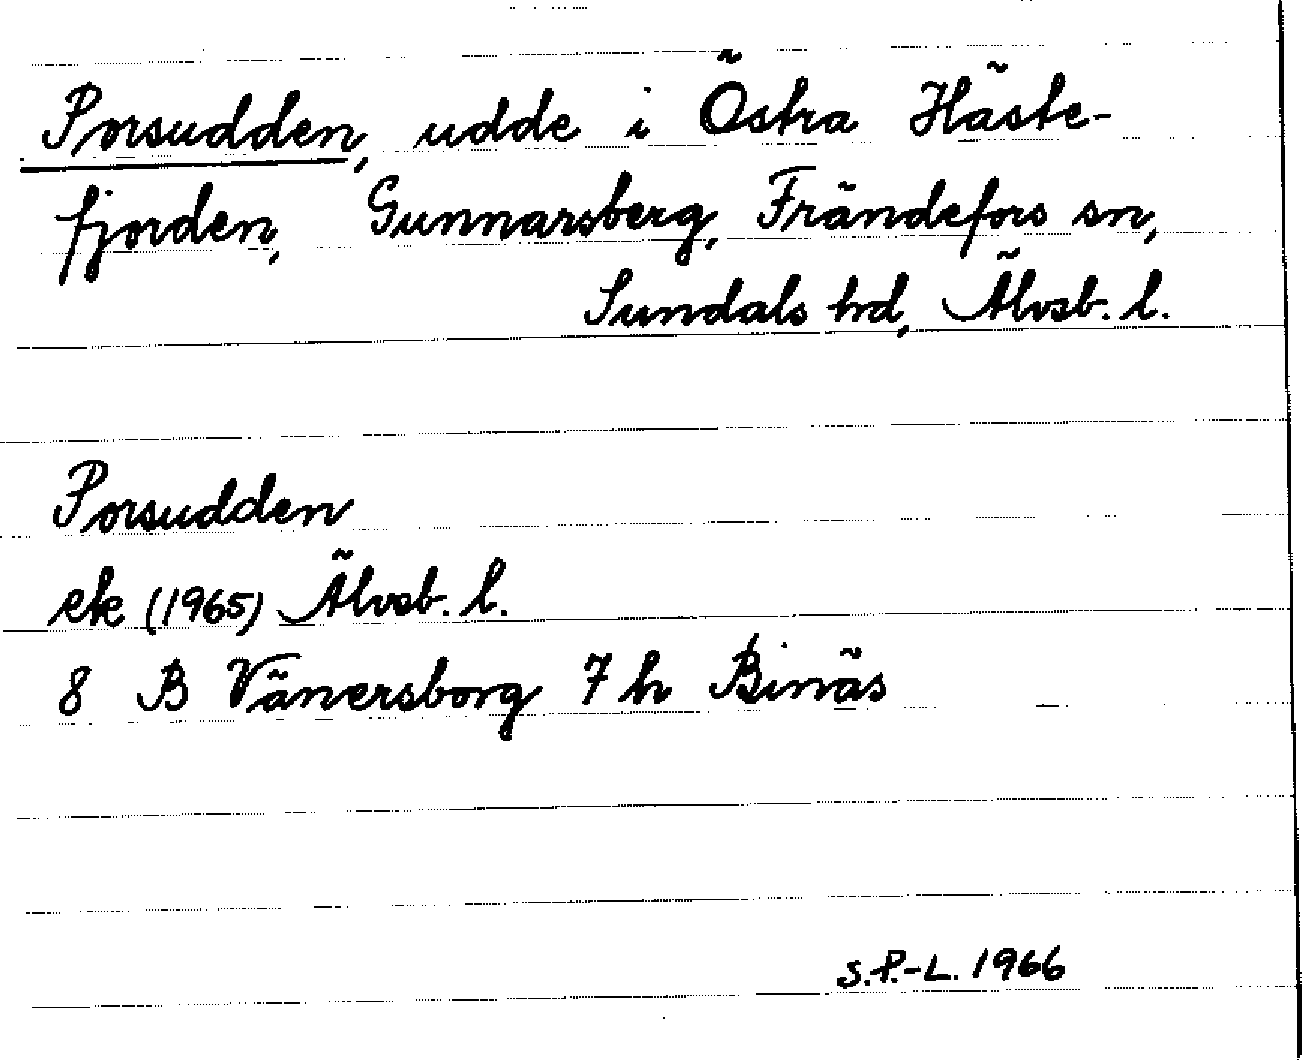 Porsudden, udde i Östra Häste-
fjorden, Gunnarsberg, Frändefors sn,
Sundals hd, Älvsb. l.
Porsudden
ek (1965) Älvsb. l.
8 B Vänersborg 7 h Binäs
S.P.-L. 1966